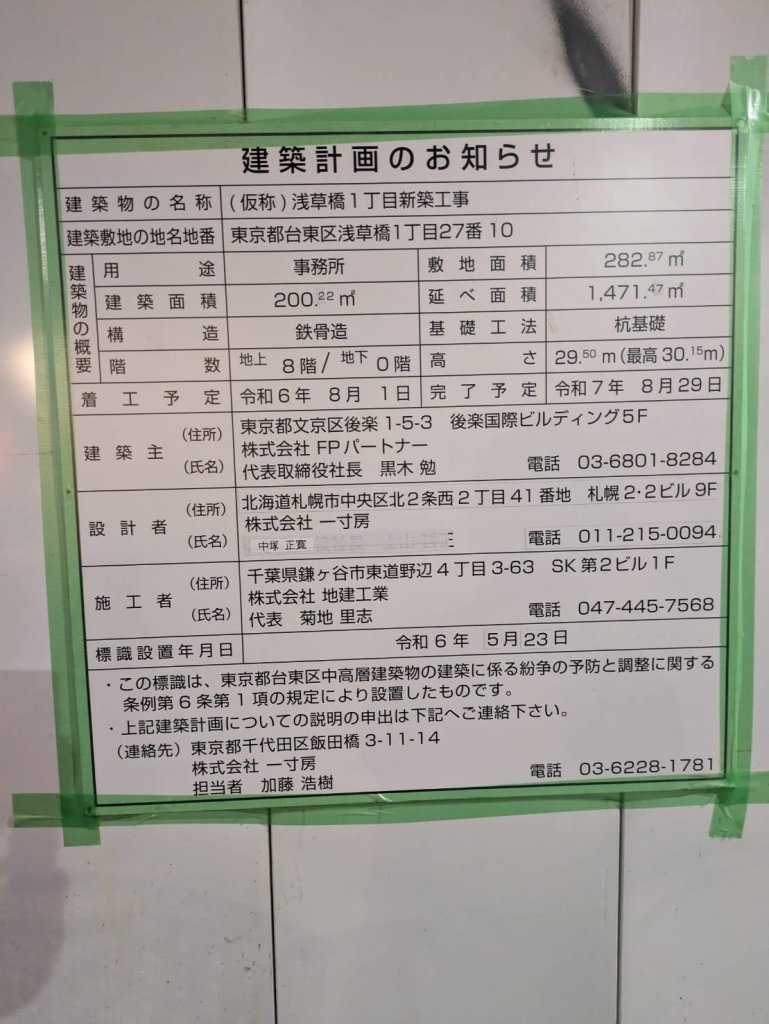 建築計画のお知らせ
建築物の名称 (仮称)浅草橋1丁目新築工事
建築敷地の地名地番 東京都台東区浅草橋1丁目27番10
建築物の概要
用途 事務所 敷地面積 282.87㎡
建築面積 200.22㎡ 延べ面積 1,471.47㎡
構造 鉄骨造 基礎工法 杭基礎
階数 地上 8階/地下 0階 高さ 29.50m(最高30.15m)
着工予定 令和6年 8月 1日 完了予定 令和7年 8月29日
建築主 (住所) 東京都文京区後楽1-5-3 後楽国際ビルディング5F
株式会社 FPパートナー
(氏名) 代表取締役社長 黒木 勉 電話 03-6801-8284
設計者 (住所) 北海道札幌市中央区北2条西2丁目41番地 札幌2・2ビル9F
株式会社 一寸房
(氏名) 中塚 正寛 電話 011-215-0094
施工者 (住所) 千葉県鎌ヶ谷市東道野辺4丁目3-63 SK第2ビル1F
株式会社 地建工業
(氏名) 代表 菊地 里志 電話 047-445-7568
標識設置年月日 令和6年 5月23日
・この標識は、東京都台東区中高層建築物の建築に係る紛争の予防と調整に関する
条例第6条第1項の規定により設置したものです。
・上記建築計画についての説明の申出は下記へご連絡下さい。
(連絡先) 東京都千代田区飯田橋3-11-14
株式会社 一寸房
担当者 加藤 浩樹 電話 03-6228-1781